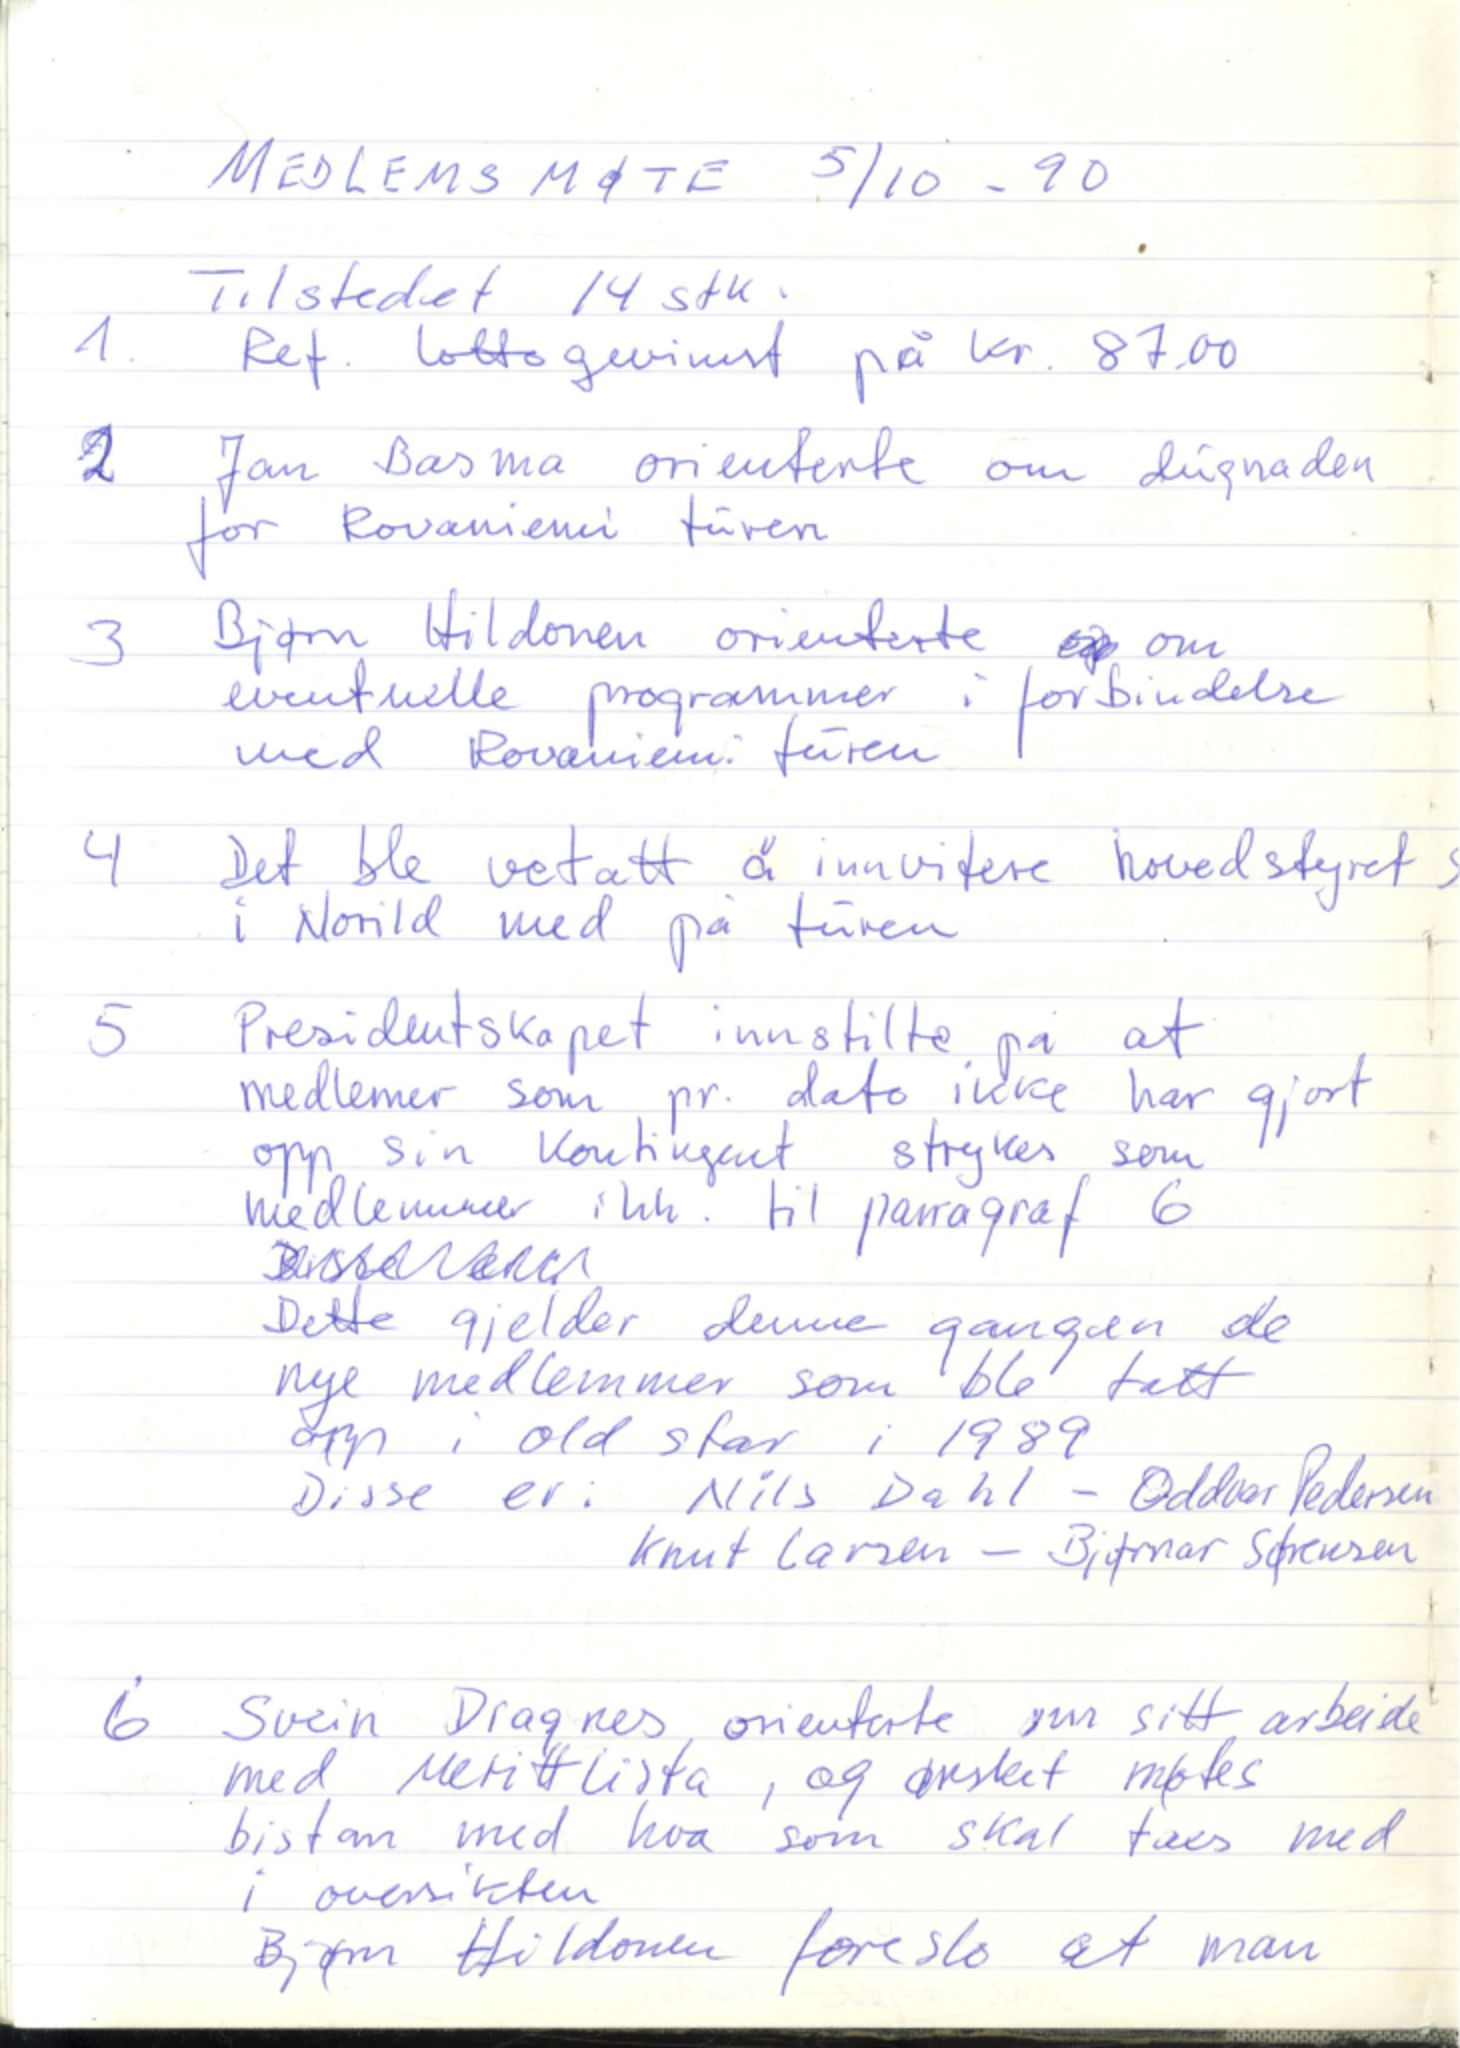 MEDLEMSMØTE 5/10 - 90
Tilstedet 14 stk.
1. Ref. lottogevinst på kr. 87.00
2 Jan Basma orienterte om dugnaden
for Rovaniemi turen
3 Bjørn Hildonen orienterte om
eventuelle programmer i forbindelse
med Rovaniemi turen
4 Det ble vetatt å innvitere hovedstyret s
i Norild med på turen
5 Presidentskapet innstilte på at
medlemer som pr. dato ikke har gjort
opp sin kontingent strykes som
medlemmer ihh. til parragraf 6
Dette gjelder denne gangen de
nye medlemmer som ble tatt
opp i old star i 1989
Disse er: Nils Dahl - Oddvar Pedersen
Knut Larsen - Bjørnar Sørensen
6 Svein Dragnes orienterte om sitt arbeide
med Merittlista, og ønsket møtes
bistan med hva som skal taes med
i oversikten
Bjørn Hildonen foreslo at man